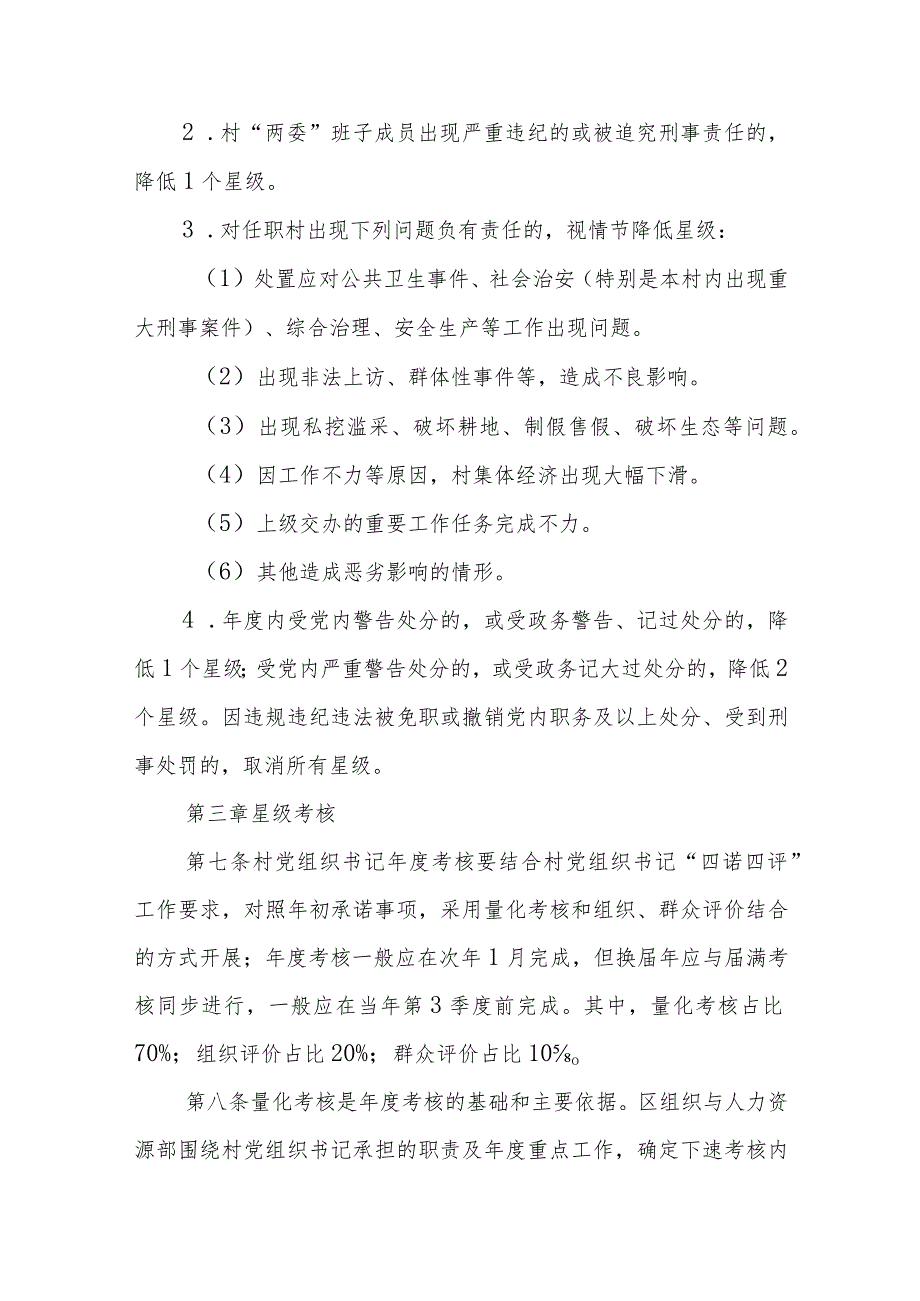 2 .村“两委”班子成员出现严重违纪的或被追究刑事责任的，
降低1个星级。
3 .对任职村出现下列问题负有责任的，视情节降低星级：
（1）处置应对公共卫生事件、社会治安（特别是本村内出现重
大刑事案件）、综合治理、安全生产等工作出现问题。
（2）出现非法上访、群体性事件等，造成不良影响。
（3）出现私挖滥采、破坏耕地、制假售假、破坏生态等问题。
（4）因工作不力等原因，村集体经济出现大幅下滑。
（5）上级交办的重要工作任务完成不力。
（6）其他造成恶劣影响的情形。
4 .年度内受党内警告处分的，或受政务警告、记过处分的，降
低1个星级;受党内严重警告处分的，或受政务记大过处分的，降低2
个星级。因违规违纪违法被免职或撤销党内职务及以上处分、受到刑
事处罚的，取消所有星级。
第三章星级考核
第七条村党组织书记年度考核要结合村党组织书记“四诺四评”
工作要求，对照年初承诺事项，采用量化考核和组织、群众评价结合
的方式开展；年度考核一般应在次年1月完成，但换届年应与届满考
核同步进行，一般应在当年第3季度前完成。其中，量化考核占比
70%；组织评价占比20%；群众评价占比10⅝。
第八条量化考核是年度考核的基础和主要依据。区组织与人力资
源部围绕村党组织书记承担的职责及年度重点工作，确定下速考核内